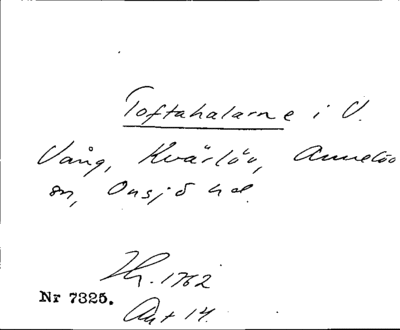 Toftahalarne i V.
Vång, Kvärlöv, Annelöv
sn, Onsjö hd.
Hr. 1762
Nr 7325.
Akt 14.